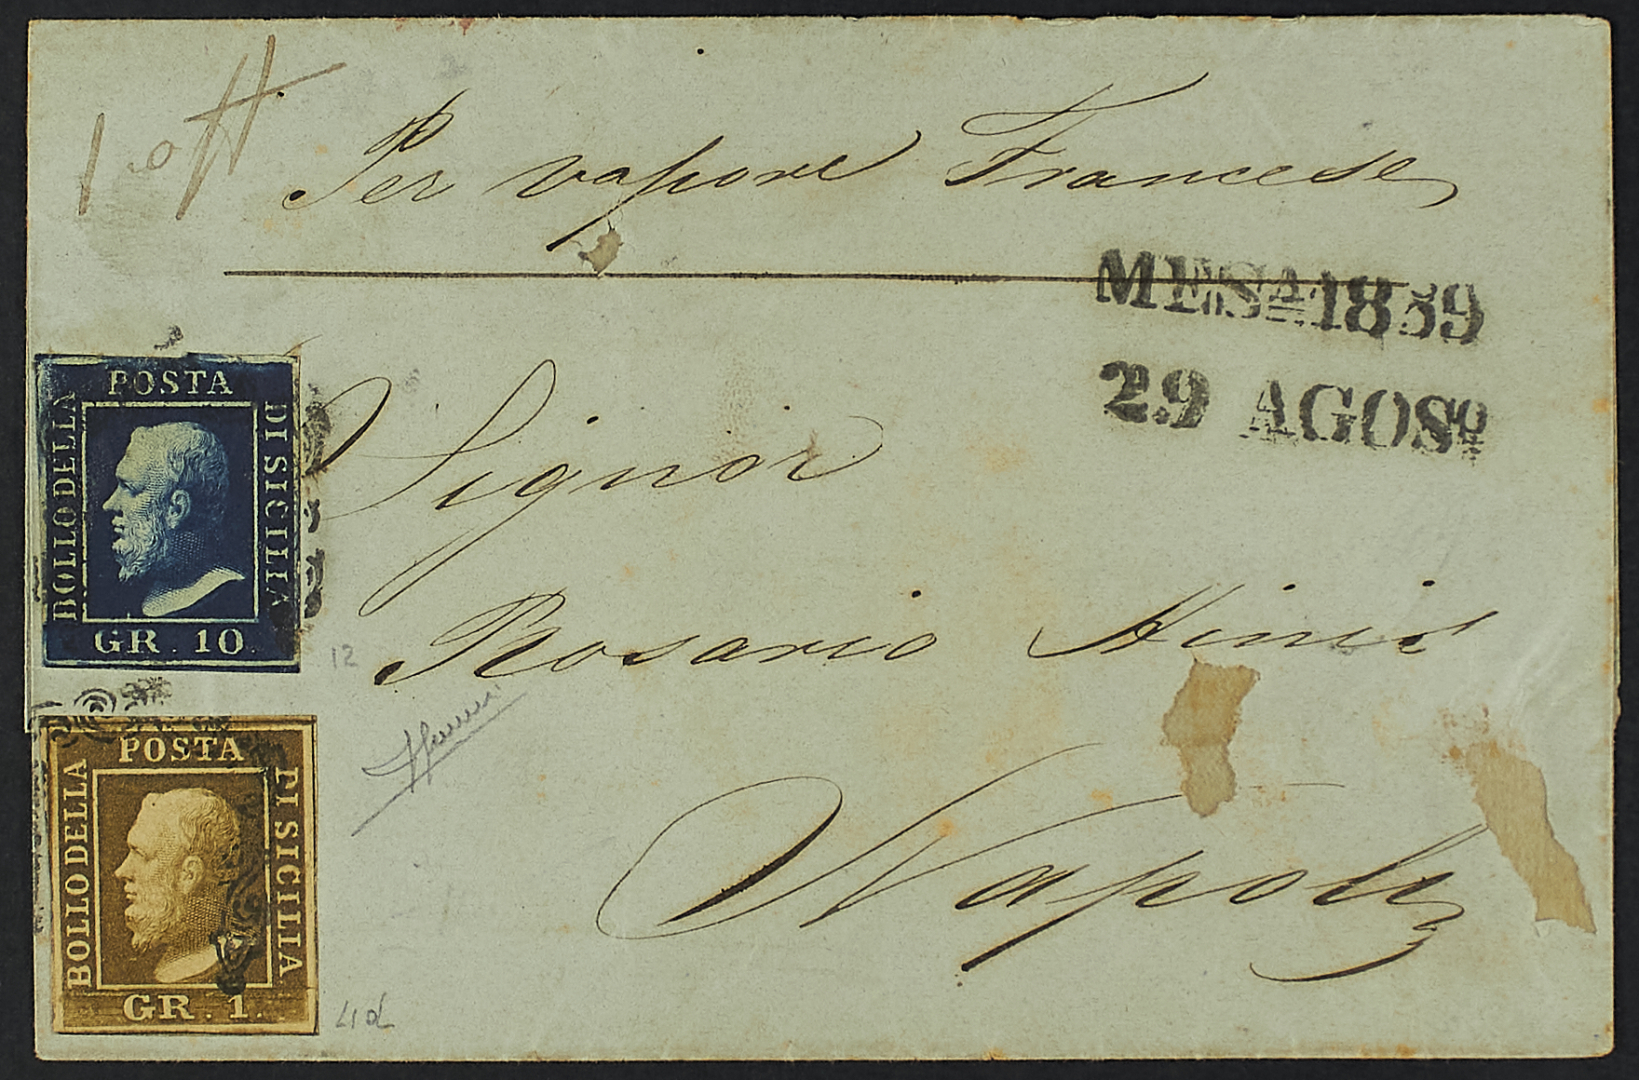 1. off
Per vapore Francese
MESA. 1859
29 AGOSO
POSTA
BOLLO DELLA
DI SICILIA
GR. 10.
Signor
Rosario
12
Napoli
POSTA
BOLLO DELLA
DI SICILIA
GR. 1.